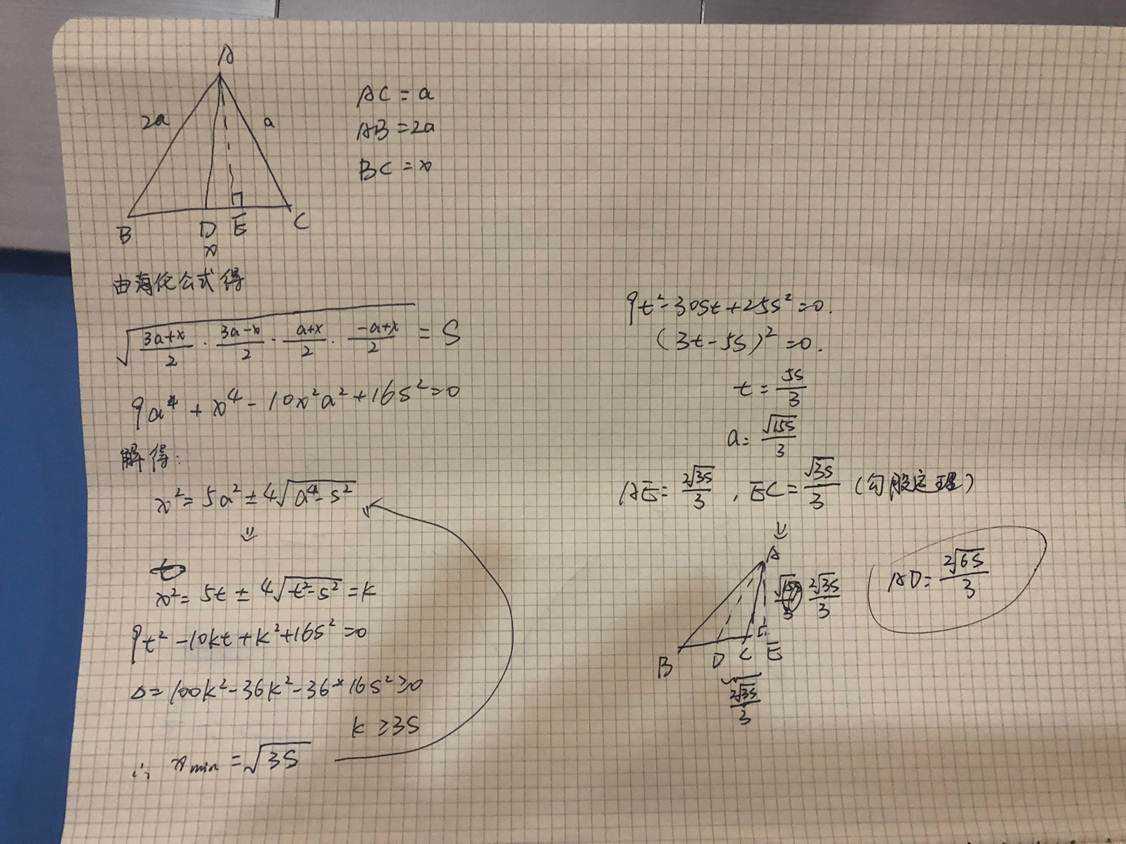 A
2a
a
B
D
E
C
x
AC = a
AB = 2a
BC = x
由海伦公式得
√(3a+x)/2 · (3a-x)/2 · (a+x)/2 · (-a+x)/2 = S
9a⁴ + x⁴ - 10x²a² + 16S² = 0
解得:
x² = 5a² ± 4√(a⁴-S²)
⇓
x² = 5t ± 4√(t²-S²) = k
9t² - 10kt + k² + 16S² = 0
Δ = 100k² - 36k² - 36×16S² ≥ 0
k ≥ 3S
∴ x min = √3S
9t² - 30St + 25S² = 0.
(3t-5S)² = 0.
t = 5S/3
a = √15S/3
AE = 2√3S/3 , EC = √3S/3 (勾股定理)
⇓
A
2√3S/3
B
D
C
E
2√3S/3
AD = 2√6S/3